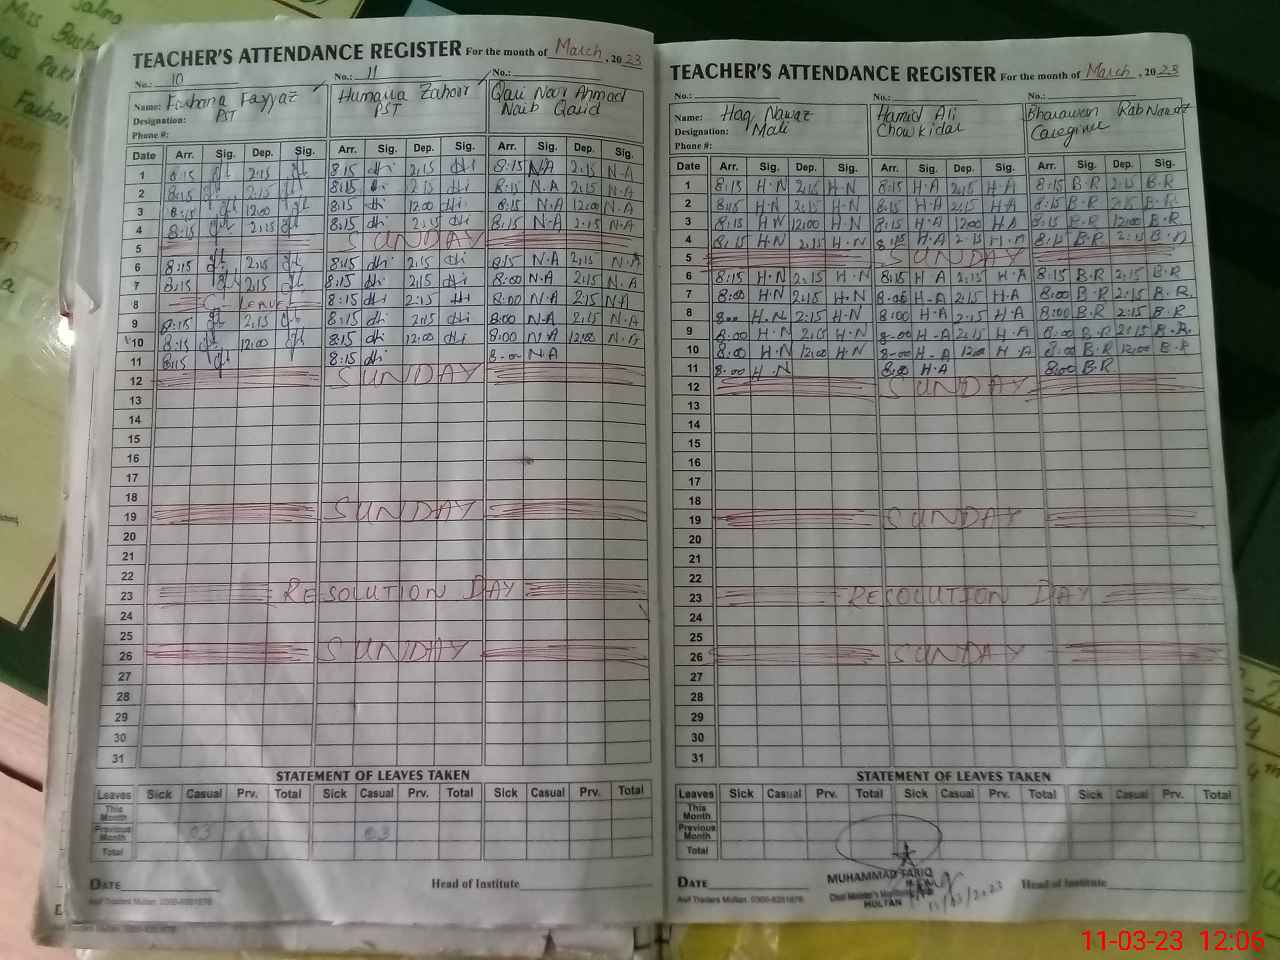 Salma
Miss
TEACHER'S ATTENDANCE REGISTER For the month of March, 2023
No.: 10 No.: 11 No.:
Name: Farhana Fayyaz Humaira Zahoor Qari Noor Ahmad
Designation: PST PST Naib Qasid
Phone #:
Date Arr. Sig. Dep. Sig. Arr. Sig. Dep. Sig. Arr. Sig. Dep. Sig.
1 8:15 2:15 8:15 2:15 8:15 N A 2:15 N-A
2 8:15 2:15 8:15 2:15 8:15 N.A 2:15 N.A
3 8:15 12:00 8:15 12:00 8:15 N.A 12:00 N.A
4 8:15 2:15 8:15 2:15 8:15 N.A 2:15 N.A
5 SUNDAY
6 8:15 2:15 8:15 2:15 8:15 N.A 2:15 N.A
7 8:15 2:15 8:15 2:15 8:00 N.A 2:15 N.A
8 C. LEAVE 8:15 2:15 8:00 N.A 2:15 N.A
9 8:15 2:15 8:15 2:15 8:00 N.A 2:15 N.A
10 8:15 12:00 8:15 12:00 8:00 N.A 12:00 N.A
11 8:15 8:15 8:00 N A
12 SUNDAY
13
14
15
16
17
18
19 SUNDAY
20
21
22
23 RESOLUTION DAY
24
25
26 SUNDAY
27
28
29
30
31
STATEMENT OF LEAVES TAKEN
Leaves Sick Casual Prv. Total Sick Casual Prv. Total Sick Casual Prv. Total
This Month
Previous Month 03 03
Total
DATE Head of Institute
Asif Traders Multan.
TEACHER'S ATTENDANCE REGISTER For the month of March, 2023
No.: No.: No.:
Name: Haq Nawaz Hamid Ali Rab Nawaz
Designation: Mali Chowkidar Caregiver
Phone #:
Date Arr. Sig. Dep. Sig. Arr. Sig. Dep. Sig. Arr. Sig. Dep. Sig.
1 8:15 H.N 2:15 H-N 8:15 H-A 2:15 H-A 8:15 B.R 2:15 B.R
2 8:15 H-N 2:15 H-N 8:15 H-A 2:15 H-A 8:15 B.R 2:15 B.R
3 8:15 H N 12:00 H-N 8:15 H-A 12:00 H A 8:15 B.R 12:00 B.R
4 8:15 H.N 2:15 H.N 8:15 H-A 2:15 H.A 8:15 B.R 2:15 B.R
5 SUNDAY
6 8:15 H.N 2:15 H.N 8:15 H-A 2:15 H-A 8:15 B.R 2:15 B.R
7 8:00 H.N 2:15 H.N 8:00 H-A 2:15 H-A 8:00 B.R 2:15 B.R.
8 8:00 H.N 2:15 H.N 8:00 H-A 2:15 H-A 8:00 B.R 2:15 B.R
9 8:00 H-N 2:15 H-N 8:00 H-A 2:15 H-A 8:00 B.R 2:15 B.R.
10 8:00 H.N 12:00 H-N 8:00 H-A 12:00 H-A 8:00 B.R 12:00 B.R
11 8:00 H.N 8:00 H.A 8:00 B.R
12 SUNDAY
13
14
15
16
17
18
19 SUNDAY
20
21
22
23 RESOLUTION DAY
24
25
26 SUNDAY
27
28
29
30
31
STATEMENT OF LEAVES TAKEN
Leaves Sick Casual Prv. Total Sick Casual Prv. Total Sick Casual Prv. Total
This Month
Previous Month
Total
DATE Head of Institute
MUHAMMAD TARIQ
Chief Minister's
MULTAN
11/03/2023
Asif Traders Multan.
11-03-23 12:06